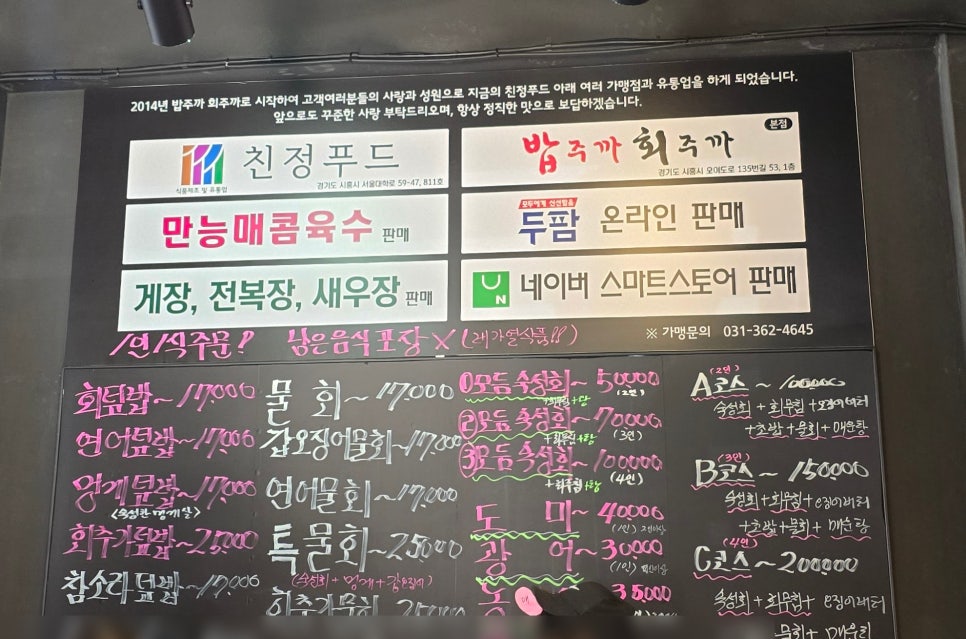 2014년 밥주까 회주까로 시작하여 고객여러분들의 사랑과 성원으로 지금의 친정푸드 아래 여러 가맹점과 유통업을 하게 되었습니다.
앞으로도 꾸준한 사랑 부탁드리오며, 항상 정직한 맛으로 보답하겠습니다.
친정푸드
식품제조 및 유통업
경기도 시흥시 서울대학로 59-47, 811호
밥주까 회주까
본점
경기도 시흥시 오이도로 135번길 53, 1층
만능매콤육수 판매
모두에게 신선함을
두팜 온라인 판매
게장, 전복장, 새우장 판매
UN
네이버 스마트스토어 판매
※ 가맹문의 031-362-4645
1인1식주문!! 남은음식포장X (래가열식품!!)
회덮밥~17,000
연어덮밥~17,000
멍게덮밥~17,000
<숙성한멍게살>
회추가덮밥~25,000
참소라덮밥~17,000
물 회~17,000
갑오징어물회~17,000
연어물회~17,000
특물회~25,000
회추가물회
①모듬숙성회~50,000
(2인)
②모듬숙성회~70,000
+회무침+탕 (3인)
③모듬숙성회~100,000
+회무침+탕 (4인)
도 미~40000
(1인)
광 어~30,000
(1인)
35000
(2인)
A코스~100,000
숙성회+회무침+오징어튀김
+초밥+물회+매운탕
(3인)
B코스~150,000
숙성회+회무침+
+초밥+물회+매운탕
(4인)
C코스~200000
숙성회+회무침+
물회+매운탕